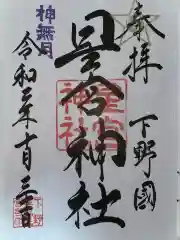 奉拝
下野國
星宮神社
星宮
神社
神無月
令和二年十月三十一日